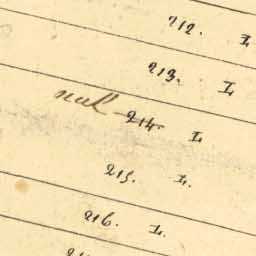 212. L
213. L
nul 214. L
215. L.
216. L.